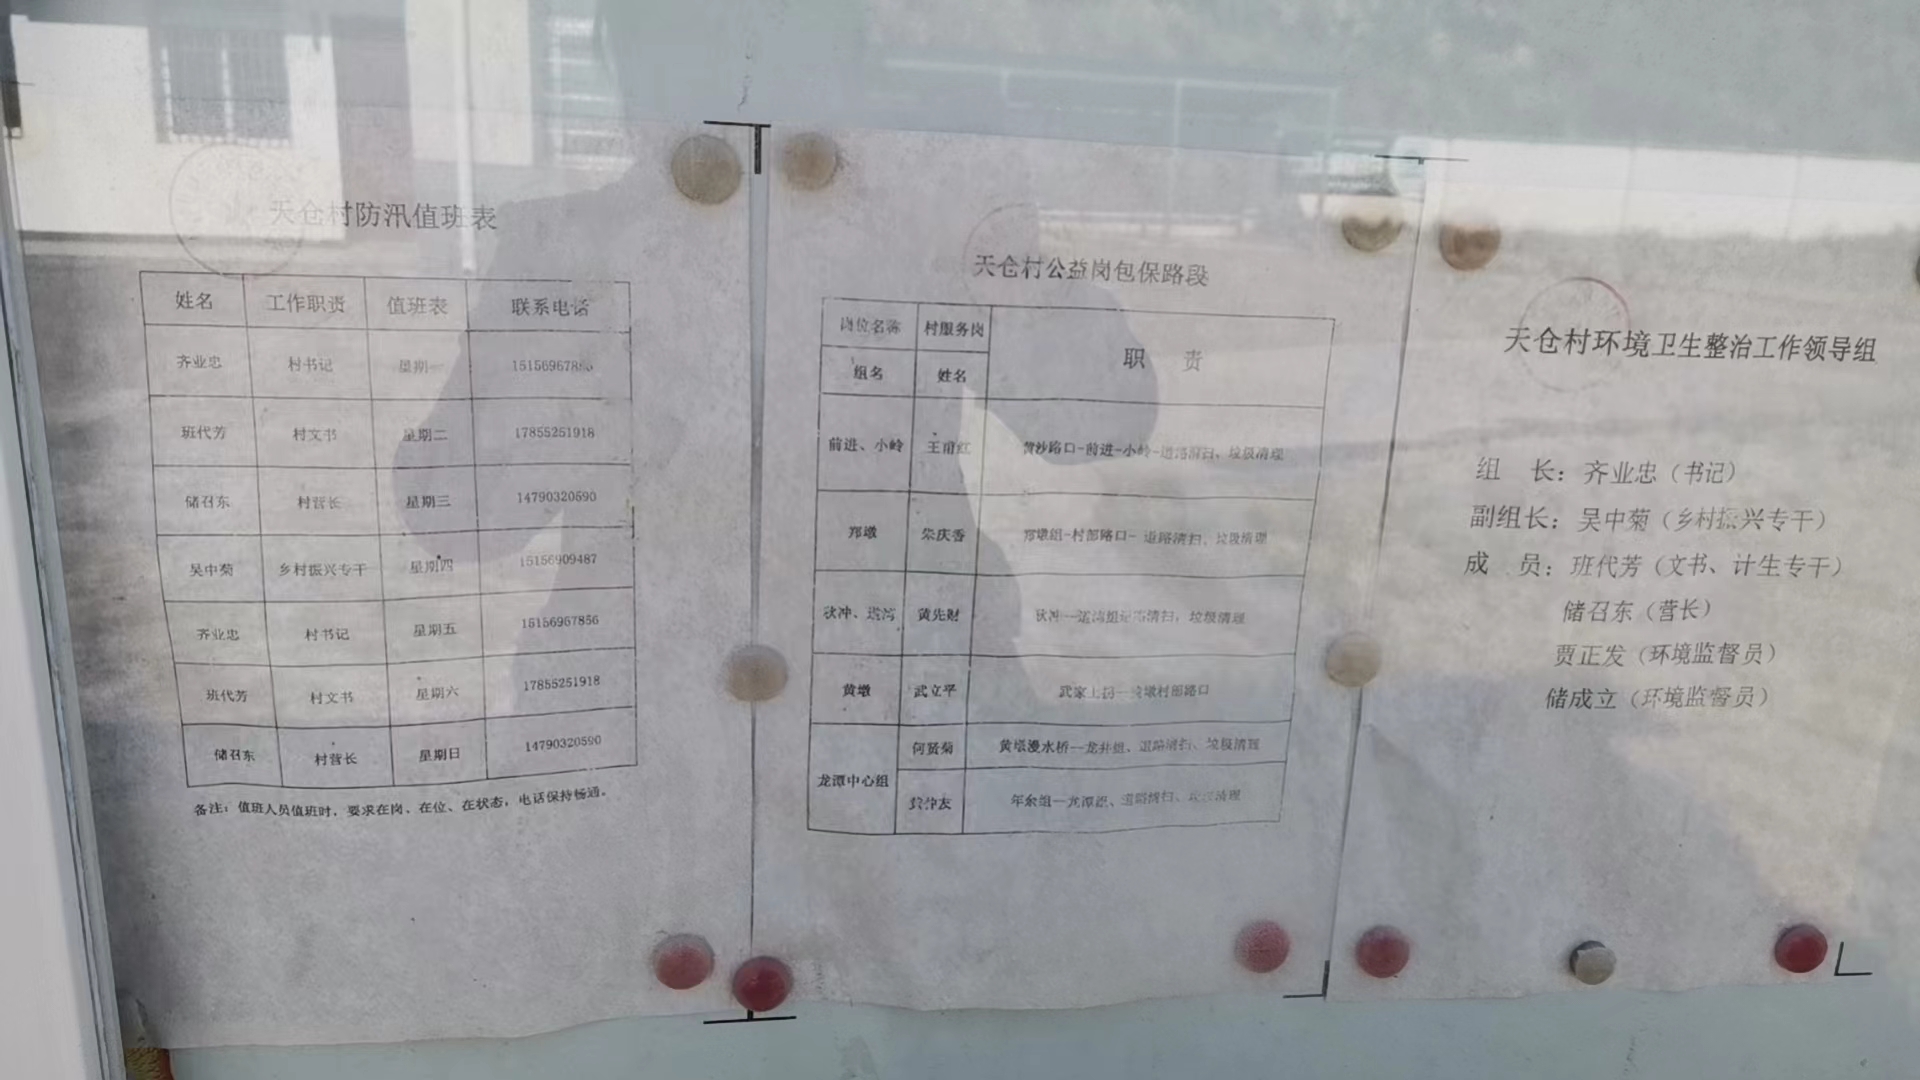 天仓村防汛值班表
姓名 工作职责 值班表 联系电话
齐业忠 村书记 星期一
班代芳 村文书 星期二 17855251918
储召东 村营长 星期三 14790320590
吴中菊 乡村振兴专干 星期四 15156909487
齐业忠 村书记 星期五 15156967856
班代芳 村文书 星期六 17855251918
储召东 村营长 星期日 14790320590
备注：值班人员值班时，要求在岗、在位、在状态，电话保持畅通。
天仓村公益岗包保路段
岗位名称 村服务岗 职 责
组名 姓名
前进、小岭 黄沙路口-前进-小岭-道路清扫、垃圾清理
郑墩 郑墩组-村部路口- 道路清扫、垃圾清理
黄先财 清扫，垃圾清理
黄墩 武立平
龙潭中心组 何贤菊 黄墩漫水桥—龙井组、道路清扫、垃圾清理
年余组—龙潭组、道路清扫、垃圾清理
天仓村环境卫生整治工作领导组
组 长：齐业忠（书记）
副组长：吴中菊（乡村振兴专干）
成 员：班代芳（文书、计生专干）
储召东（营长）
贾正发（环境监督员）
储成立（环境监督员）